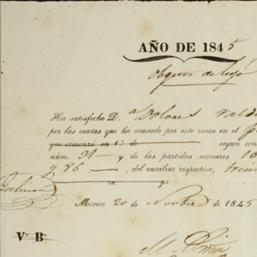 AÑO DE 1845
Objetos de lujo
Ha satisfecho D.ª Dolores Vald
por las cuotas que ha causado por este ramo en el
que comenzó en 1.º de segun cons
núm. 31 y de las partidas números 10
y 86 del auxiliar respectivo,
Mexico 20 de Novbre de 1845
V B